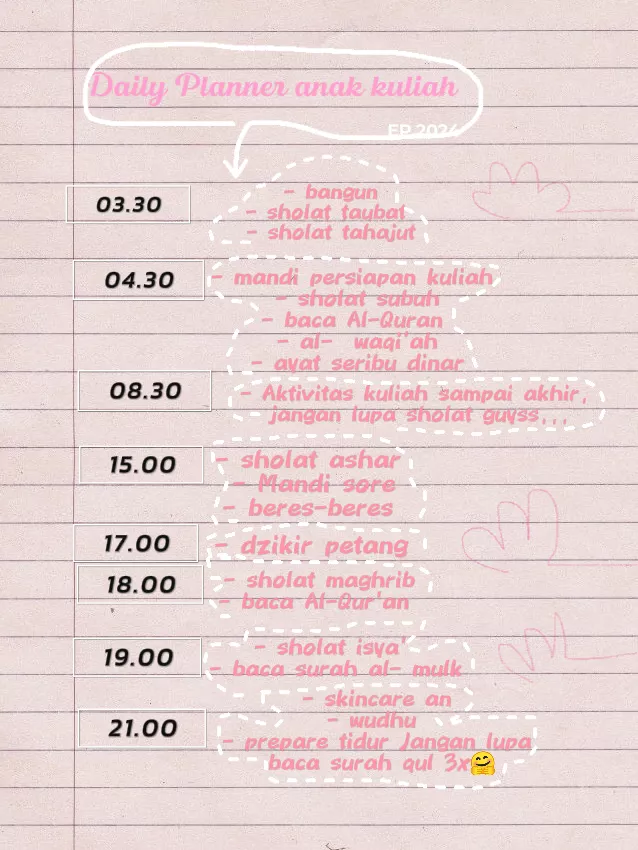 Daily Planner anak kuliah
EP 2024
03.30
- bangun
- sholat taubat
- sholat tahajut
04.30
- mandi persiapan kuliah
- sholat subuh
- baca Al-Quran
- al- waqi'ah
- ayat seribu dinar
08.30
- Aktivitas kuliah sampai akhir,
jangan lupa sholat guyss...
15.00
- sholat ashar
- Mandi sore
- beres-beres
17.00
- dzikir petang
18.00
- sholat maghrib
- baca Al-Qur'an
19.00
- sholat isya'
- baca surah al- mulk
21.00
- skincare an
- wudhu
- prepare tidur Jangan lupa
baca surah qul 3x🤗